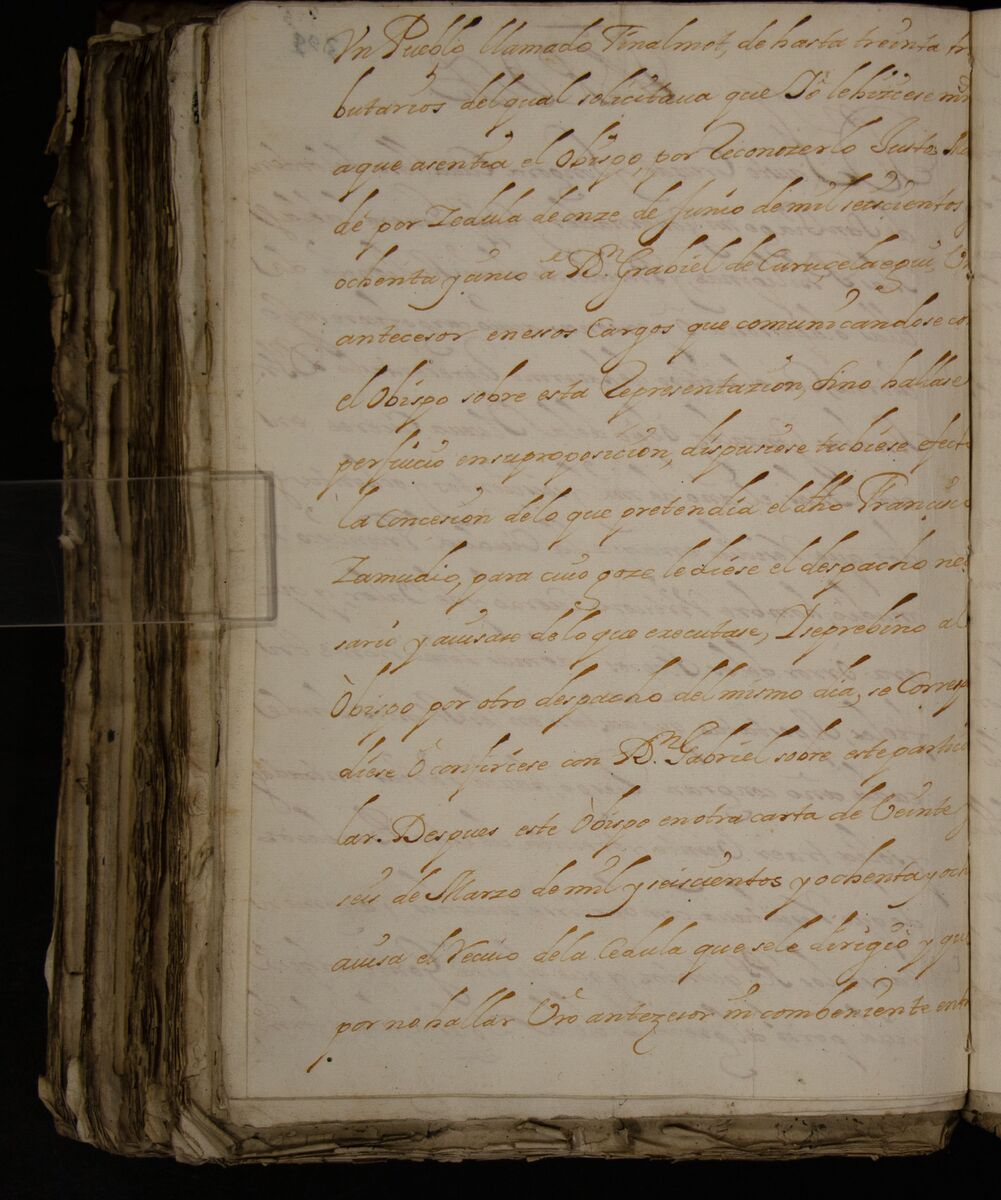 Vn Pueblo llamado Tinalmot, de hasta treinta tr
butarios del qual solicitaua que Yo le hiziese mr
a que asentia el Obispo por reconozerlo Justo,
de por Zedula de onze de Junio de mil seiscientos y
ochenta y cinco â Dn. Grabiel de Curucelaegui, Vr
antecesor en essos Cargos que comunicandose co
el Obispo sobre esta representazion, sino hallase
perjuicio en su proposicion, dispusiese tubiese efect
la Concesion de lo que pretendia el dho Francisc
Zamudio, para cuio goze le diese el despacho ne
sario y auisase de lo que executase, Y se prebino al
Obispo por otro despacho del mismo dia, se Corresp
diese ô confiriese con Dn. Gabriel sobre este particu
lar. Despues este Obispo en otra carta de Veinte y
seis de Marzo de mil y seiscientos y ochenta y och
auisa el Recivo de la Cedula que se le dirigio y que
por no hallar Vro antezesor inconbeniente en